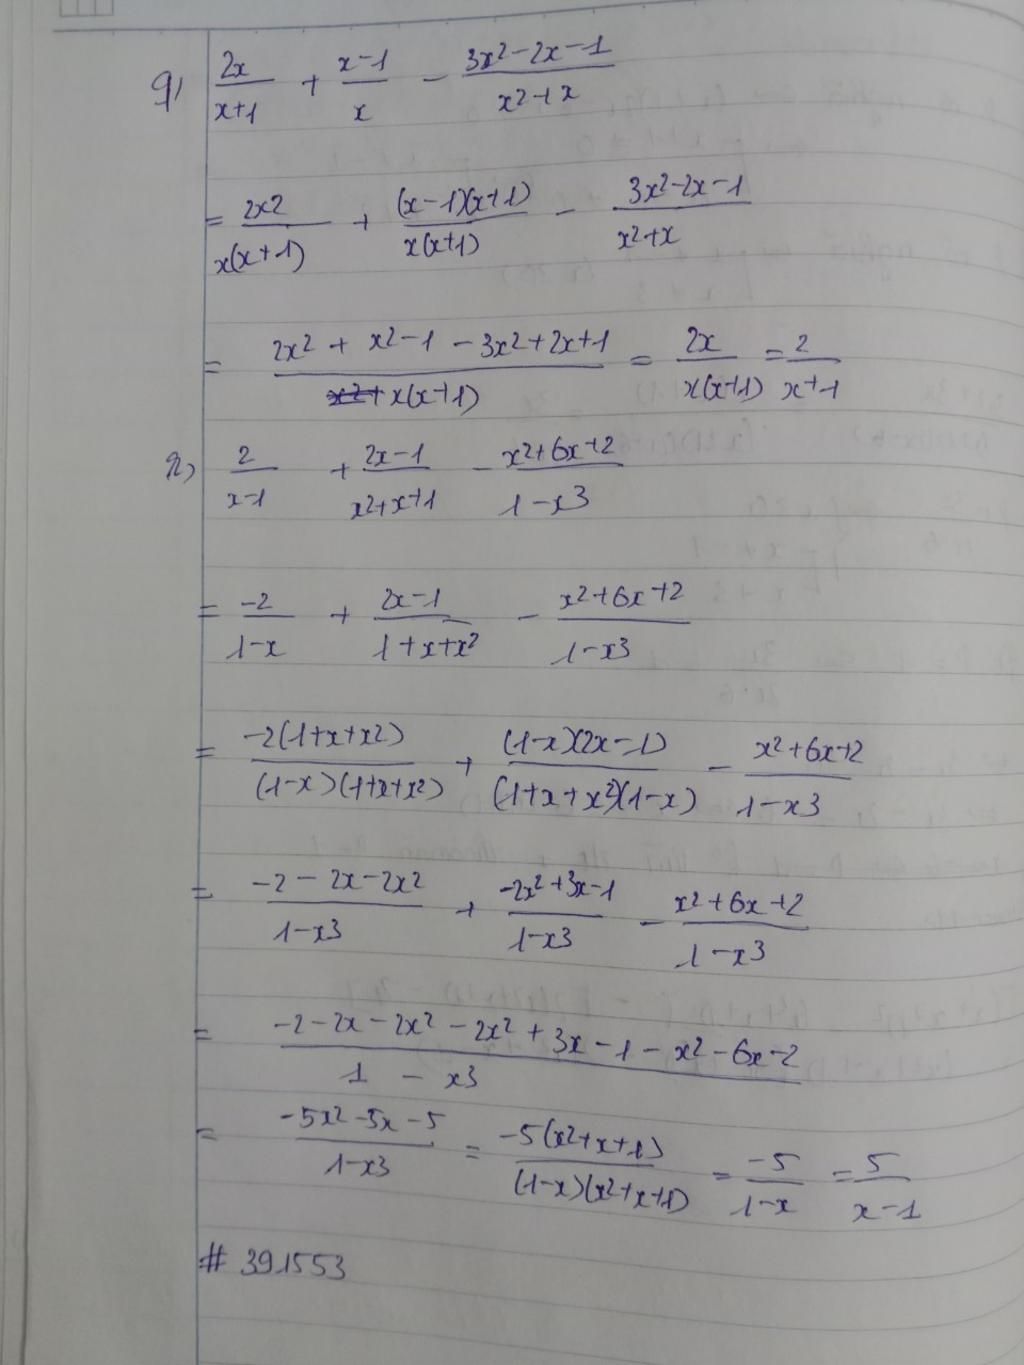 q, 2x/(x+1) + (x-1)/x - (3x²-2x-1)/(x²+x)
= 2x2/(x(x+1)) + ((x-1)(x+1))/(x(x+1)) - (3x²-2x-1)/(x²+x)
= (2x² + x²-1 - 3x²+2x+1)/(x(x+1)) = 2x/(x(x+1)) = 2/(x+1)
r, 2/(x-1) + (2x-1)/(x²+x+1) - (x²+6x+2)/(1-x3)
= -2/(1-x) + (2x-1)/(1+x+x²) - (x²+6x+2)/(1-x3)
= (-2(1+x+x²))/((1-x)(1+x+x²)) + ((1-x)(2x-1))/((1+x+x²)(1-x)) - (x²+6x+2)/(1-x3)
= (-2-2x-2x2)/(1-x3) + (-2x²+3x-1)/(1-x3) - (x²+6x+2)/(1-x3)
= (-2-2x-2x²-2x²+3x-1-x²-6x-2)/(1-x3)
= (-5x²-5x-5)/(1-x3) = (-5(x²+x+1))/((1-x)(x²+x+1)) = -5/(1-x) = 5/(x-1)
# 391553